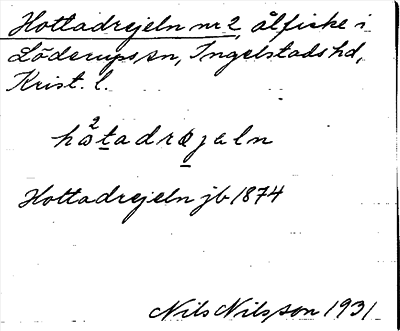 Hottadrejeln nr 2, ålfiske i
Löderups sn, Ingelstads hd,
Krist. l.
hå²tadrejaln
Hottadrejeln jb 1874
Nils Nilsson 1931